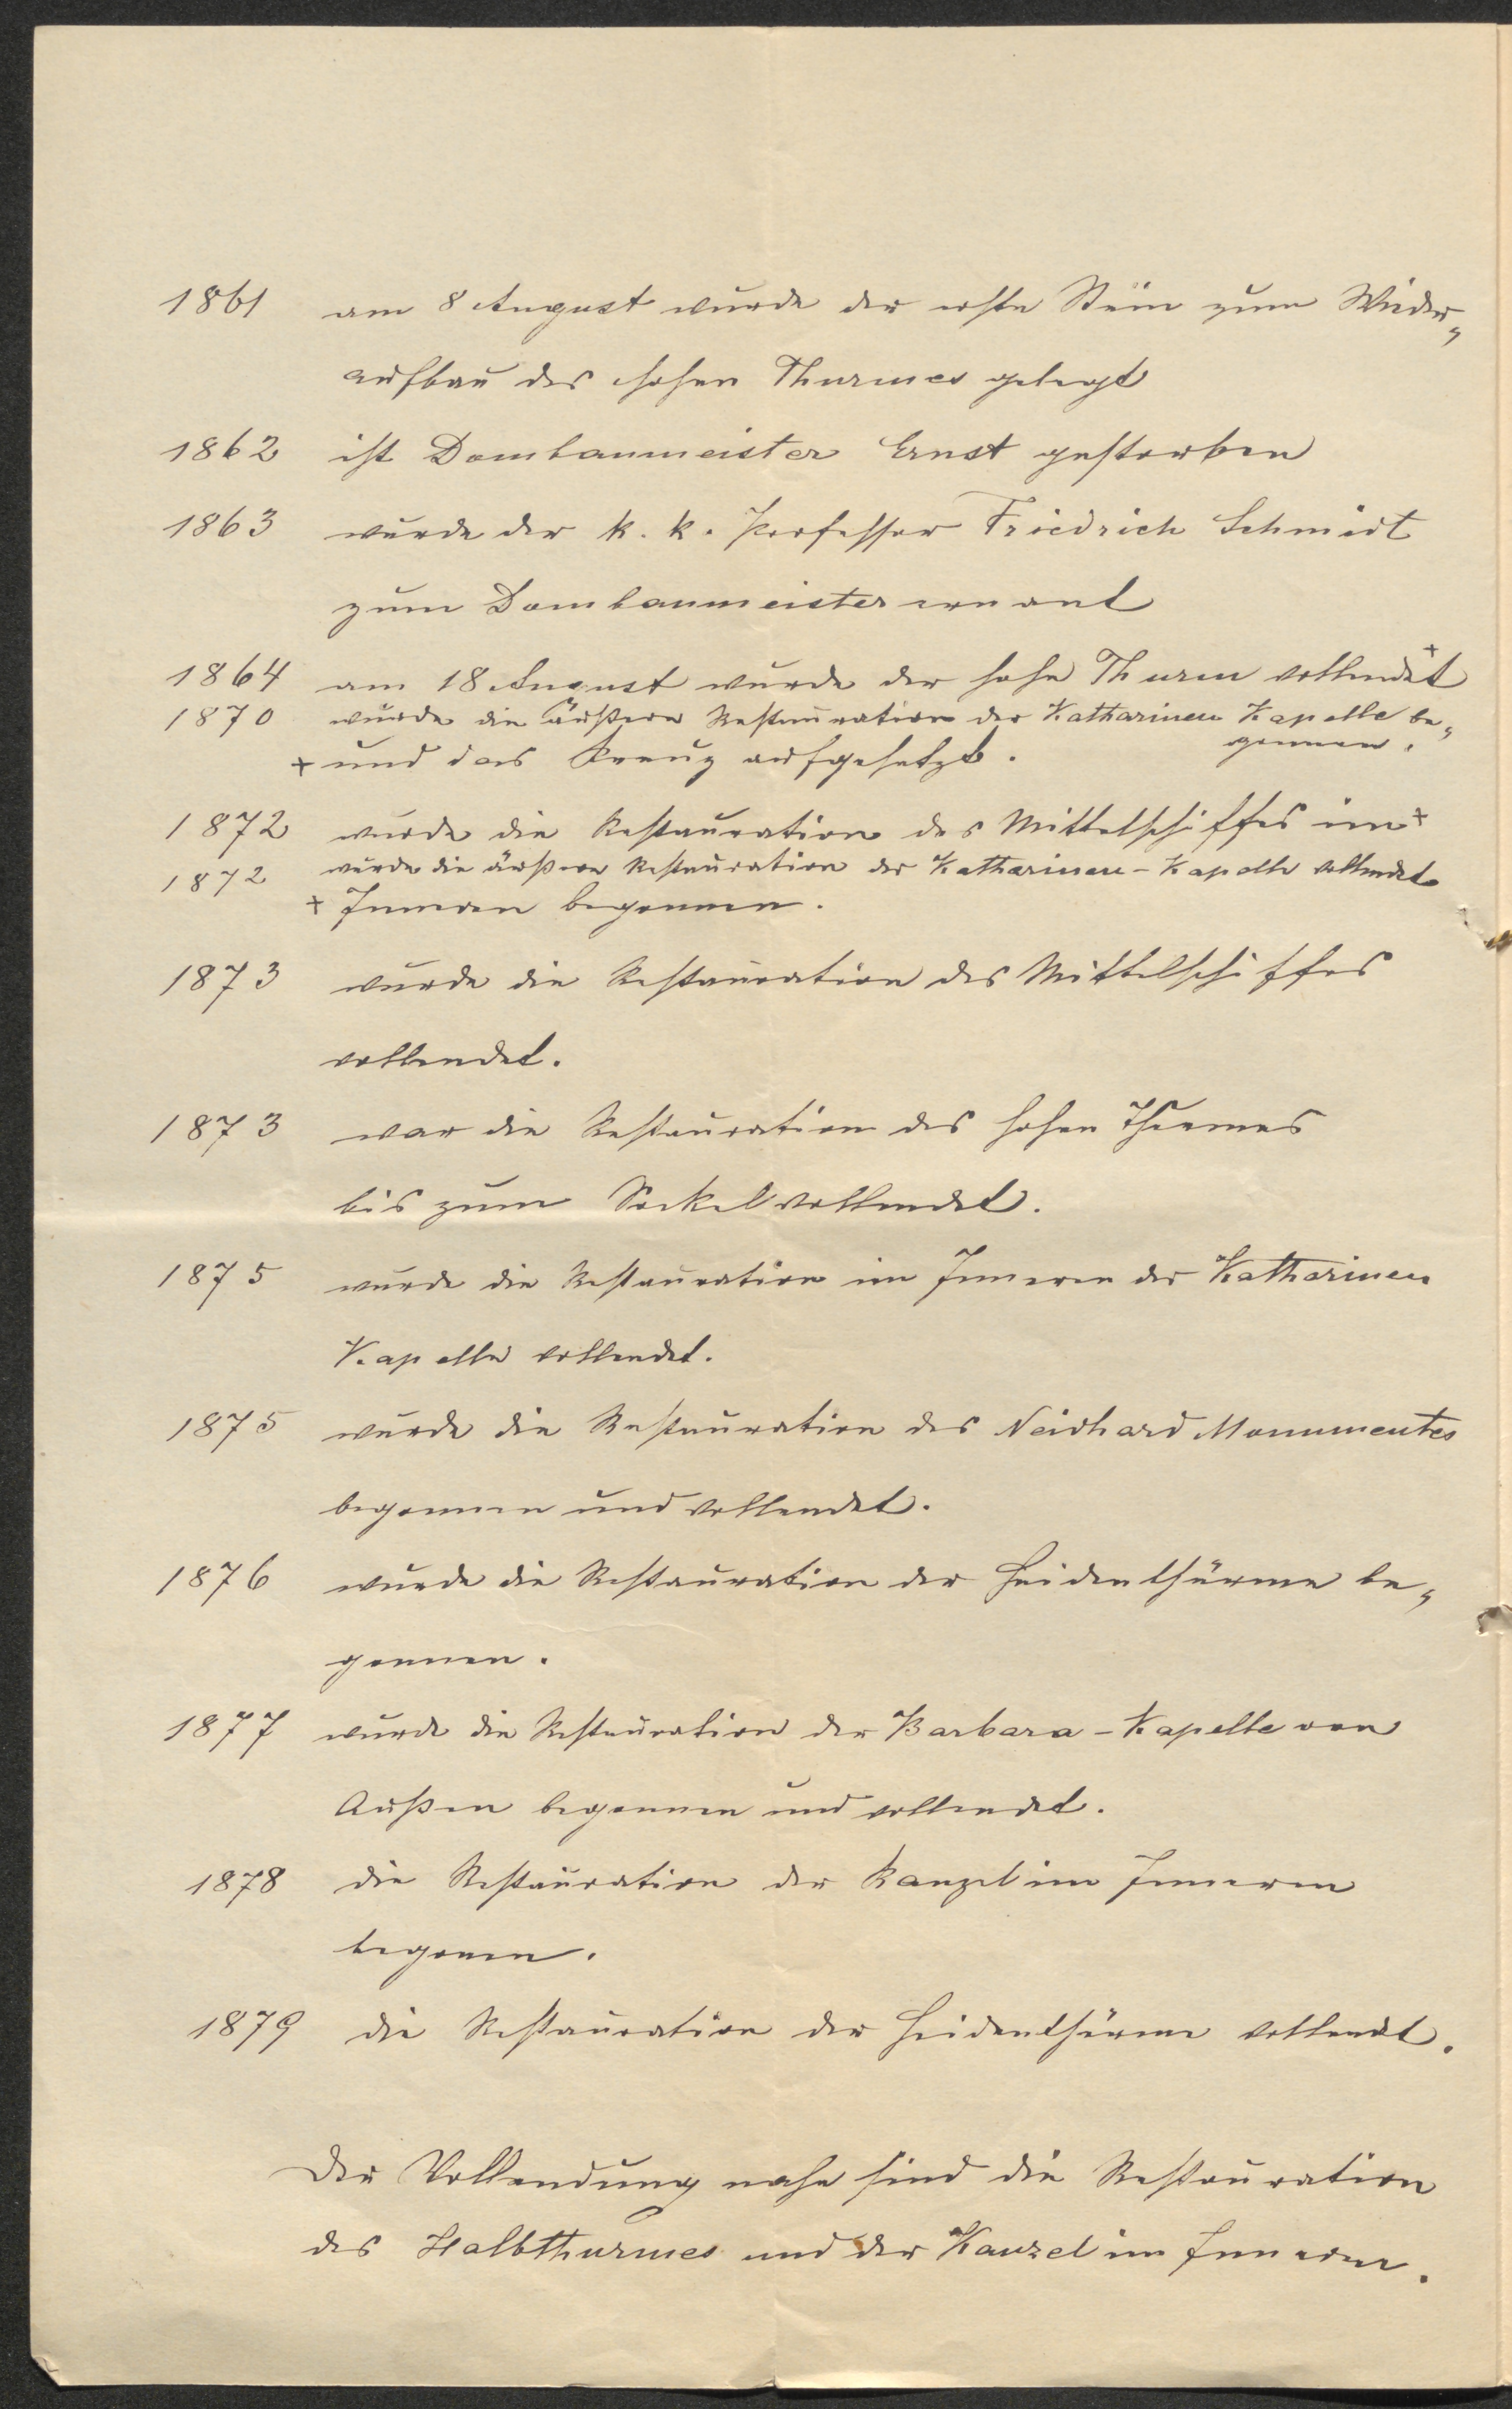 1861 am 8 August wurde der erste Stein zum Wieder„
aufbau des hohen Thurmes gelegt
1862 ist Dombaumeister Ernst gestorben
1863 wurde der k. k. Professor Friedrich Schmidt
zum Dombaumeister ernant
1864 am 18 August wurde der hohe Thurm vollendet +
1870 wurde die äußere Restauration der Katharinen Kapelle be„
gonnen.
+ und das Kreuz aufgesetzt.
1872 wurde die Restauration des Mittelschiffes im +
1872 wurde die äußere Restauration der Katharinen-Kapelle vollendet
+ Inneren begonnen.
1873 wurde die Restauration des Mittelschiffes
vollendet.
1873 war die Restauration des hohen Thurmes
bis zum Sockel vollendet.
1875 wurde die Restauration im Inneren der Katharinen
Kapelle vollendet.
1875 wurde die Restauration des Neidhard Monumentes
begonnen und vollendet.
1876 wurde die Restauration der Heidenthürme be„
gonnen.
1877 wurde die Restauration der Barbara-Kapelle von
Außen begonnen und vollendet.
1878 die Restauration der Kanzel im Inneren
begonen.
1879 die Restauration der Heidenthürme vollendet.
Der Vollendung nahe sind die Restauration
des Halbthurmes und der Kanzel im Inneren.